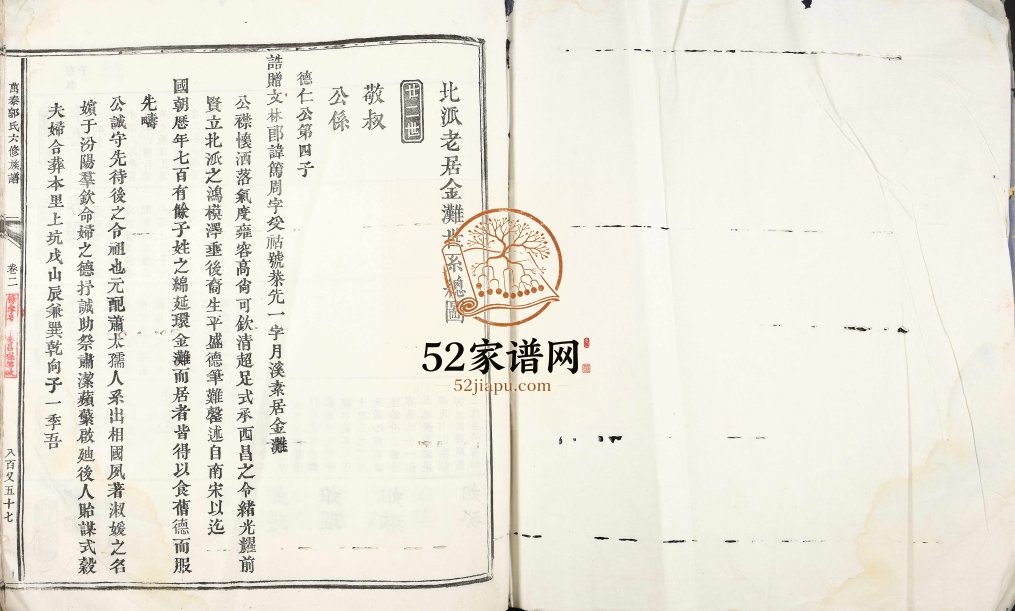 北派老居金灘世系總圖
廿二世
敬叔
公係
德仁公第四子
誥贈文林郎諱篤周字受祜號棐先一字月溪素居金灘
公襟懷洒落氣度雍容高尙可欽清超足式承西昌之令緒光耀前
賢立北派之鴻模澤垂後裔生平盛德筆難罄述自南宋以迄
國朝歷年七百有餘子姓之綿延環金灘而居者皆得以食舊德而服
先疇
公誠守先待後之令祖也元配蕭太孺人系出相國夙著淑媛之名
嬪于汾陽羣欽命婦之德抒誠助祭肅潔蘋蘩啟廸後人貽謀式穀
夫婦合葬本里上坑戌山辰兼巽乾向子一季吾
萬泰郭氏六修族譜
卷二
八百又五十七
52家谱网
52jiapu.com